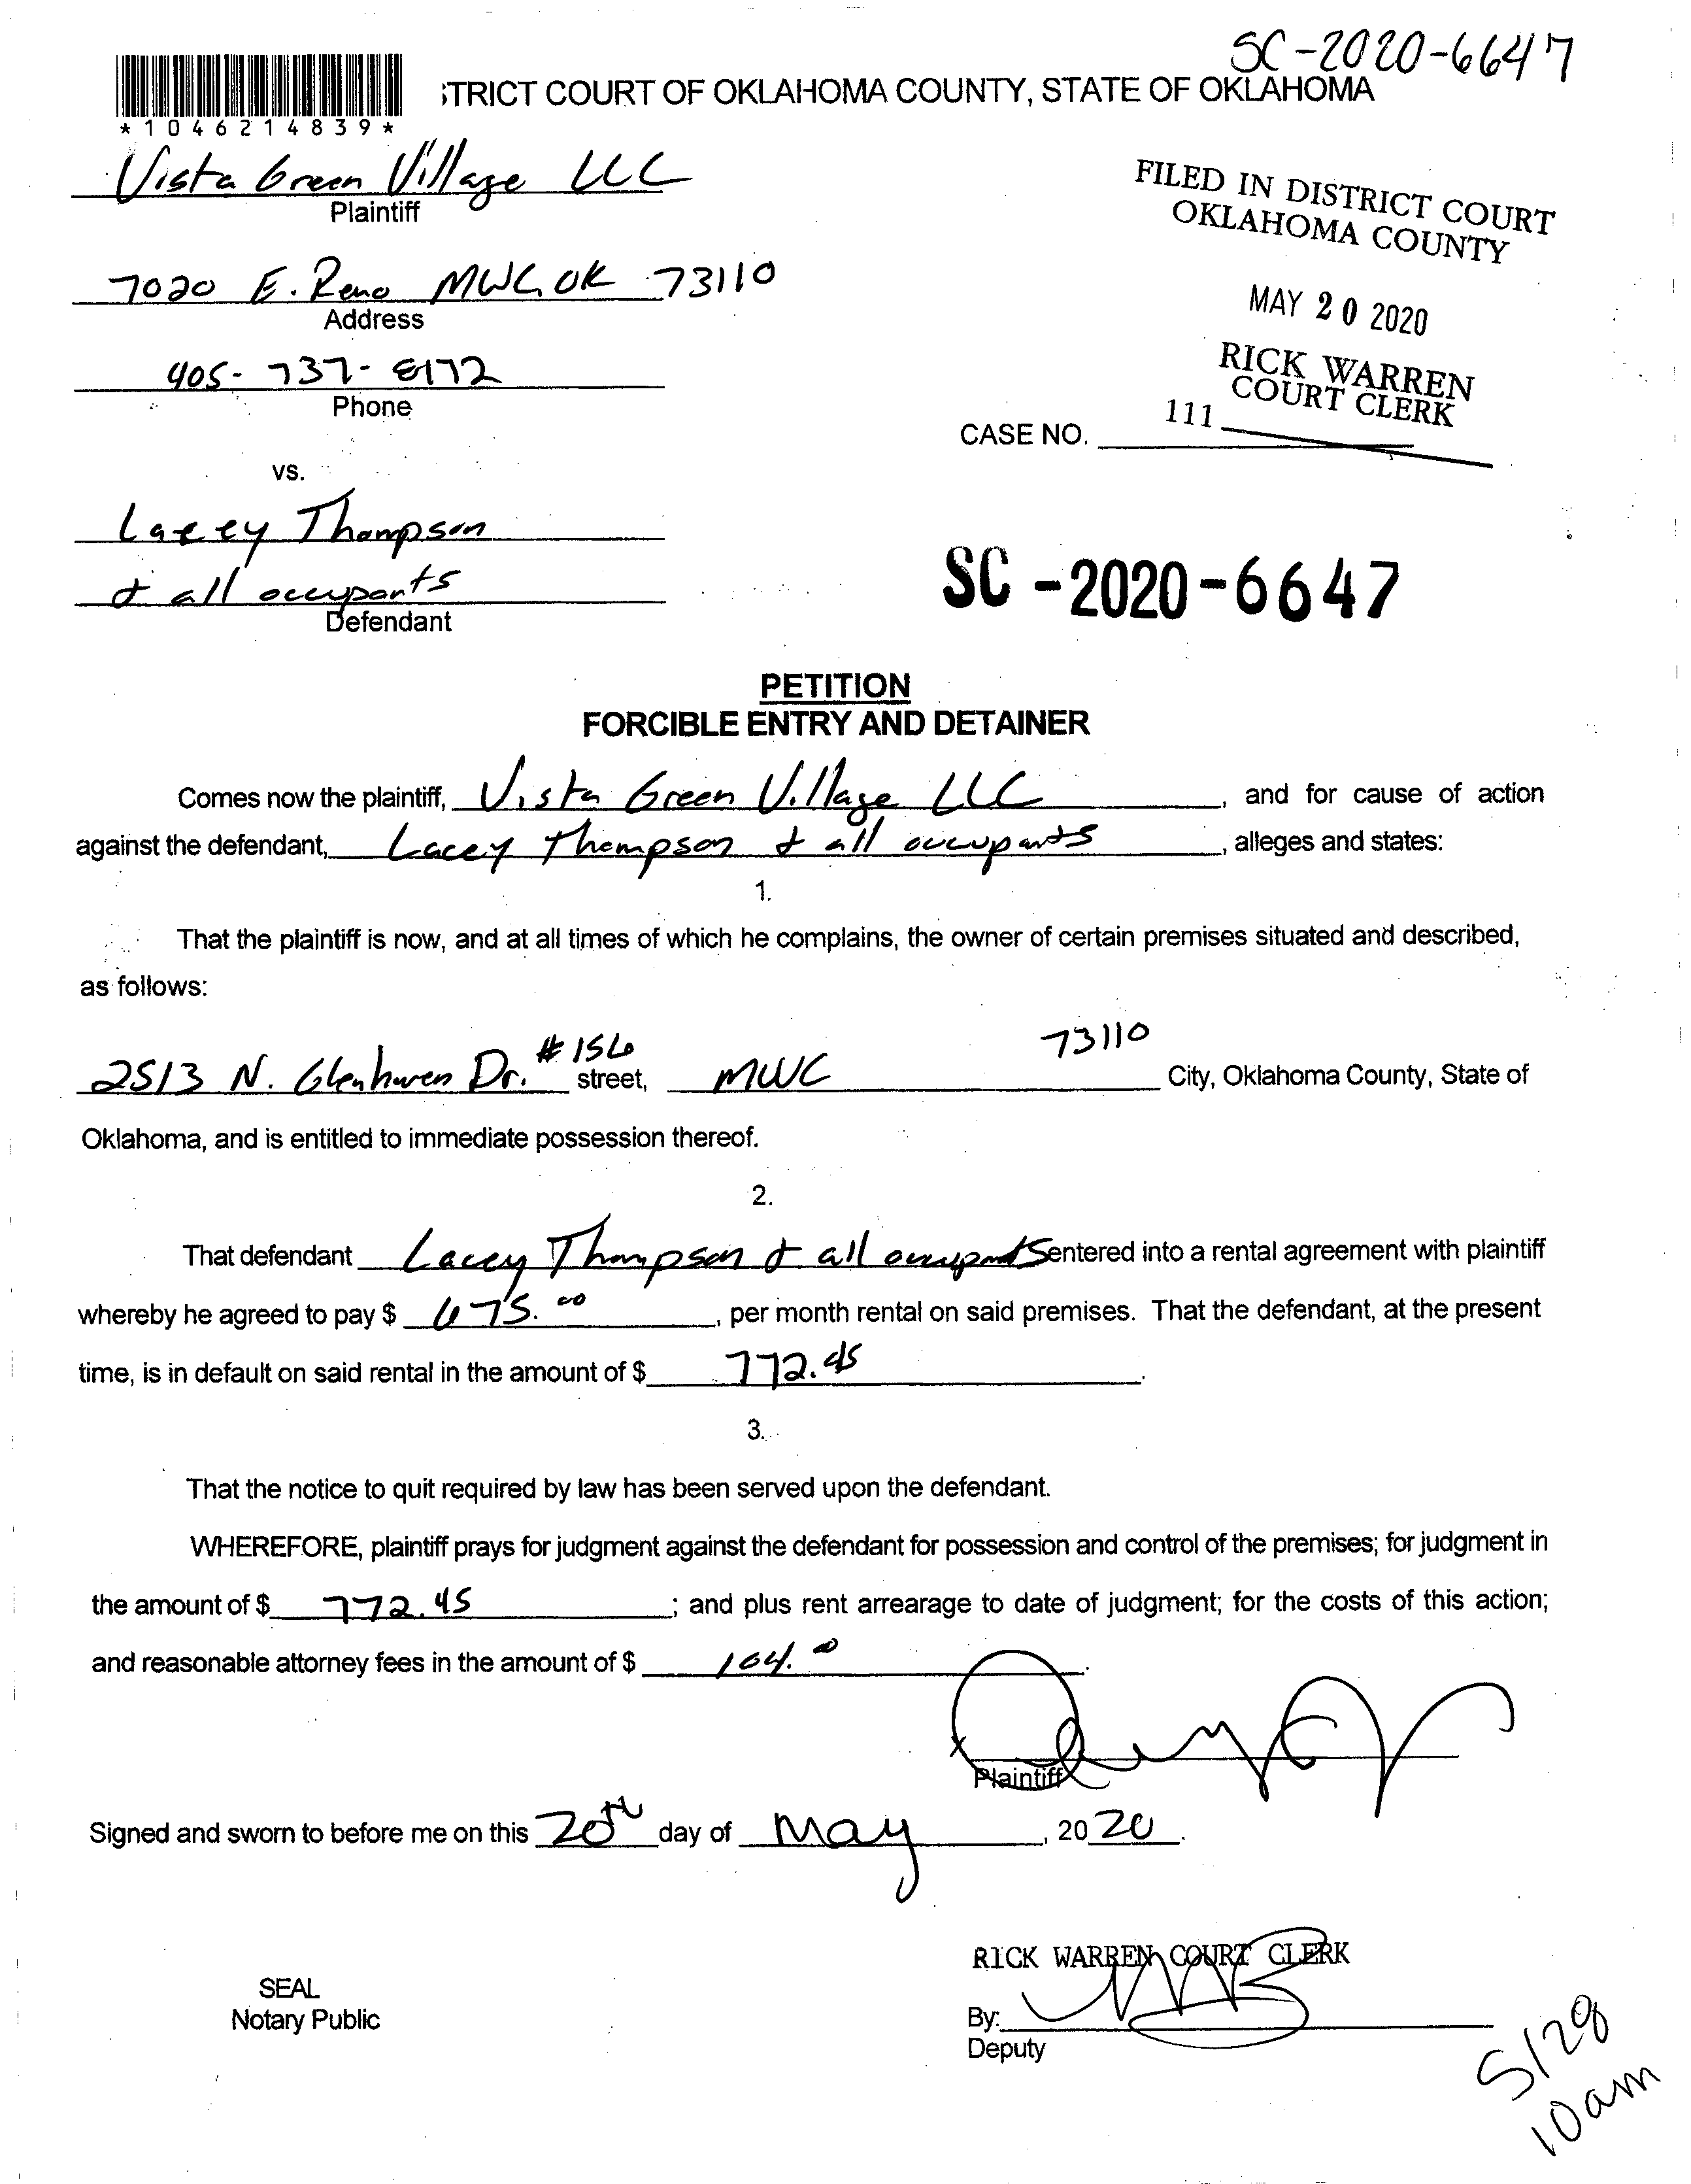 SC-2020-6647
*1046214839*
TRICT COURT OF OKLAHOMA COUNTY, STATE OF OKLAHOMA
Vista Green Village LLC
Plaintiff
FILED IN DISTRICT COURT
OKLAHOMA COUNTY
7020 E. Reno MWC, OK 73110
Address
MAY 20 2020
405-737-8172
Phone
RICK WARREN
COURT CLERK
111
CASE NO.
vs.
Lacey Thompson
& all occupants
Defendant
SC-2020-6647
PETITION
FORCIBLE ENTRY AND DETAINER
Comes now the plaintiff, Vista Green Village LLC, and for cause of action
against the defendant, Lacey Thompson & all occupants, alleges and states:
1.
That the plaintiff is now, and at all times of which he complains, the owner of certain premises situated and described,
as follows:
2513 N. Glenhaven Dr. #156 street, MWC 73110 City, Oklahoma County, State of
Oklahoma, and is entitled to immediate possession thereof.
2.
That defendant Lacey Thompson & all occupants entered into a rental agreement with plaintiff
whereby he agreed to pay $ 675.00, per month rental on said premises. That the defendant, at the present
time, is in default on said rental in the amount of $ 772.45.
3.
That the notice to quit required by law has been served upon the defendant.
WHEREFORE, plaintiff prays for judgment against the defendant for possession and control of the premises; for judgment in
the amount of $ 772.45; and plus rent arrearage to date of judgment; for the costs of this action;
and reasonable attorney fees in the amount of $ 164.00.
x
Plaintiff
Signed and sworn to before me on this 20th day of May, 2020.
RICK WARREN COURT CLERK
SEAL
Notary Public
By:
Deputy
5/29
10am